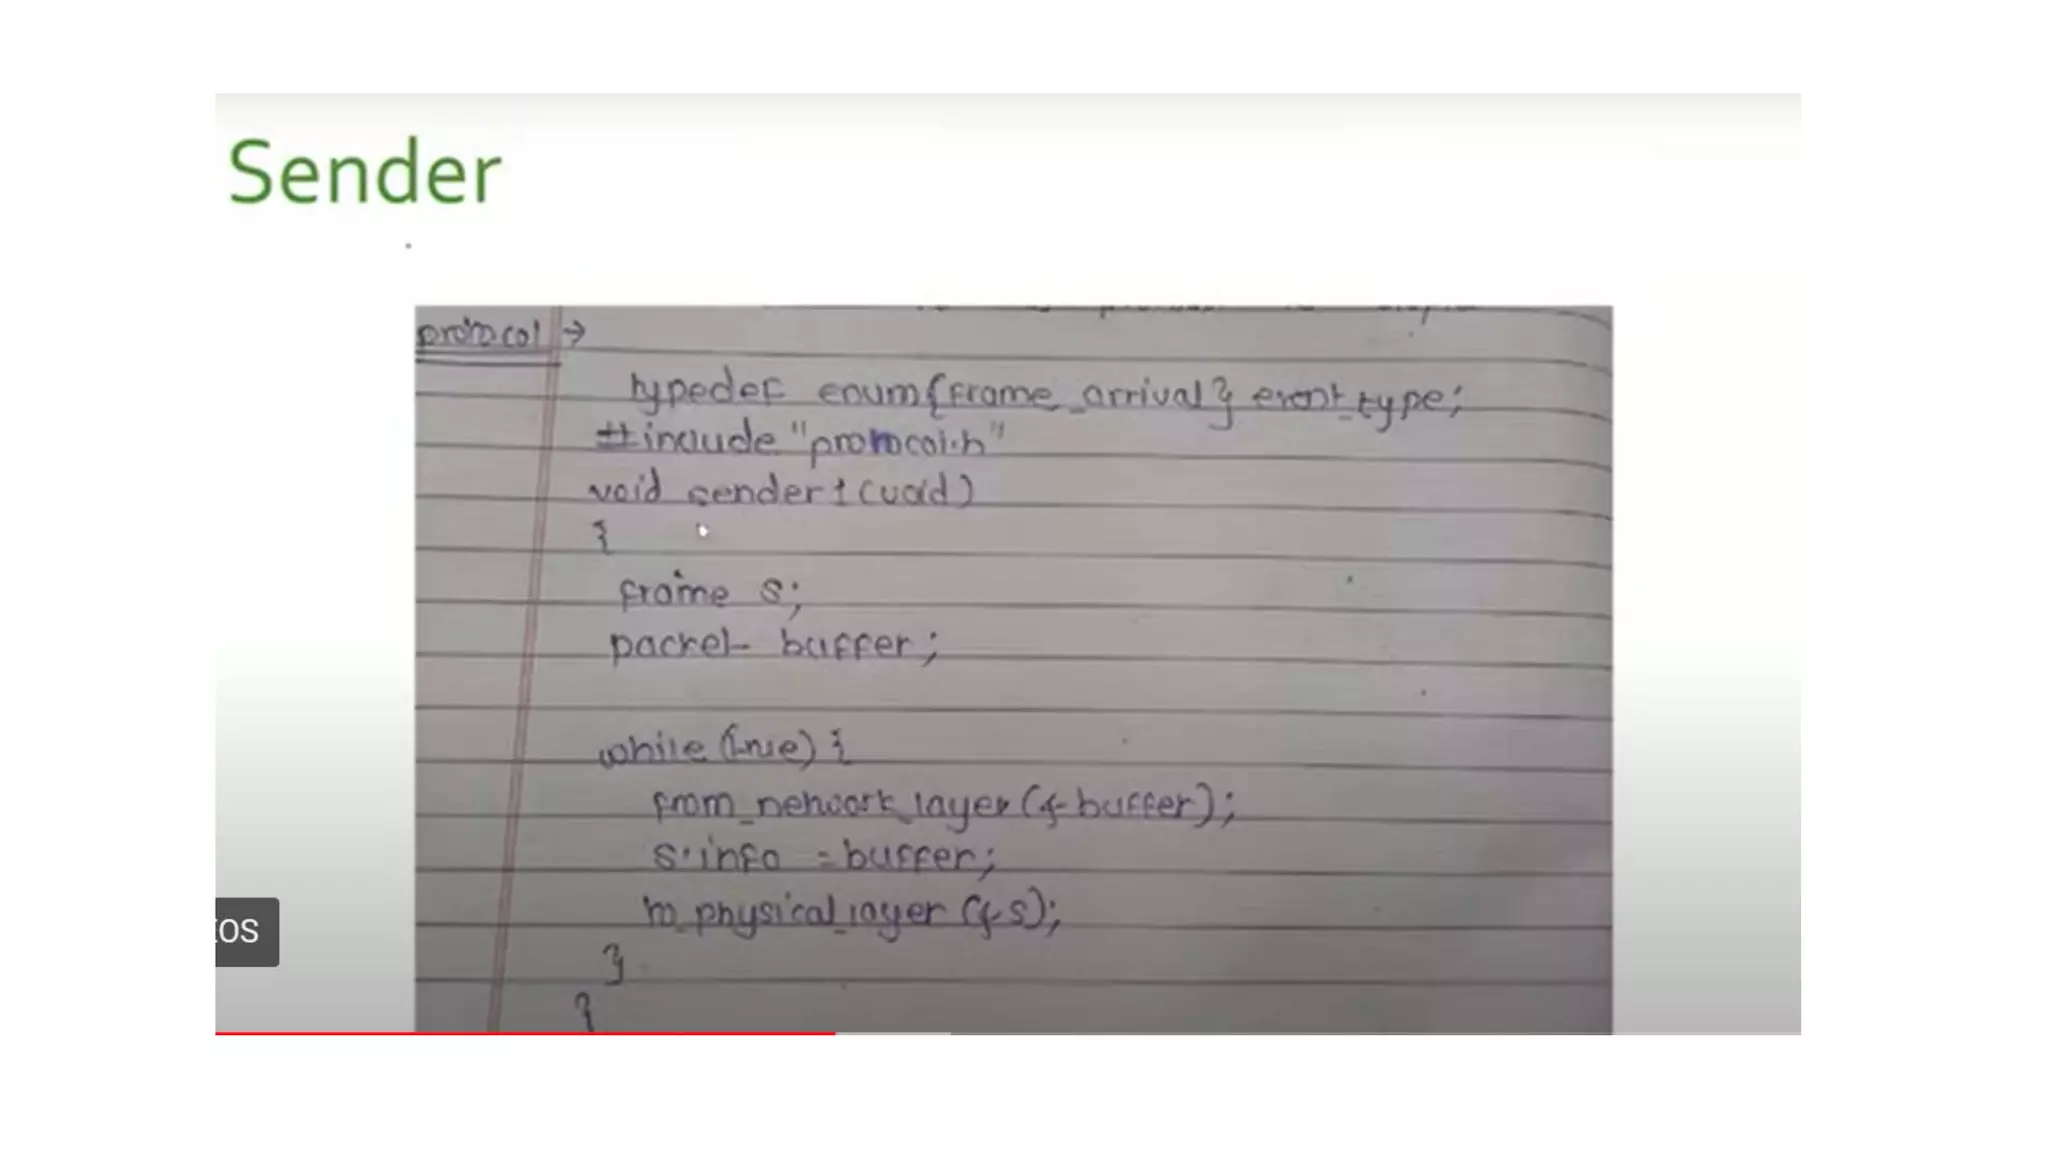 Sender
protocol →
typedef enum{frame_arrival} event_type;
#include "protocol.h"
void sender1(void)
{
frame s;
packet buffer;
while(true){
from_network_layer(&buffer);
s.info = buffer;
to_physical_layer(&s);
}
}
tos